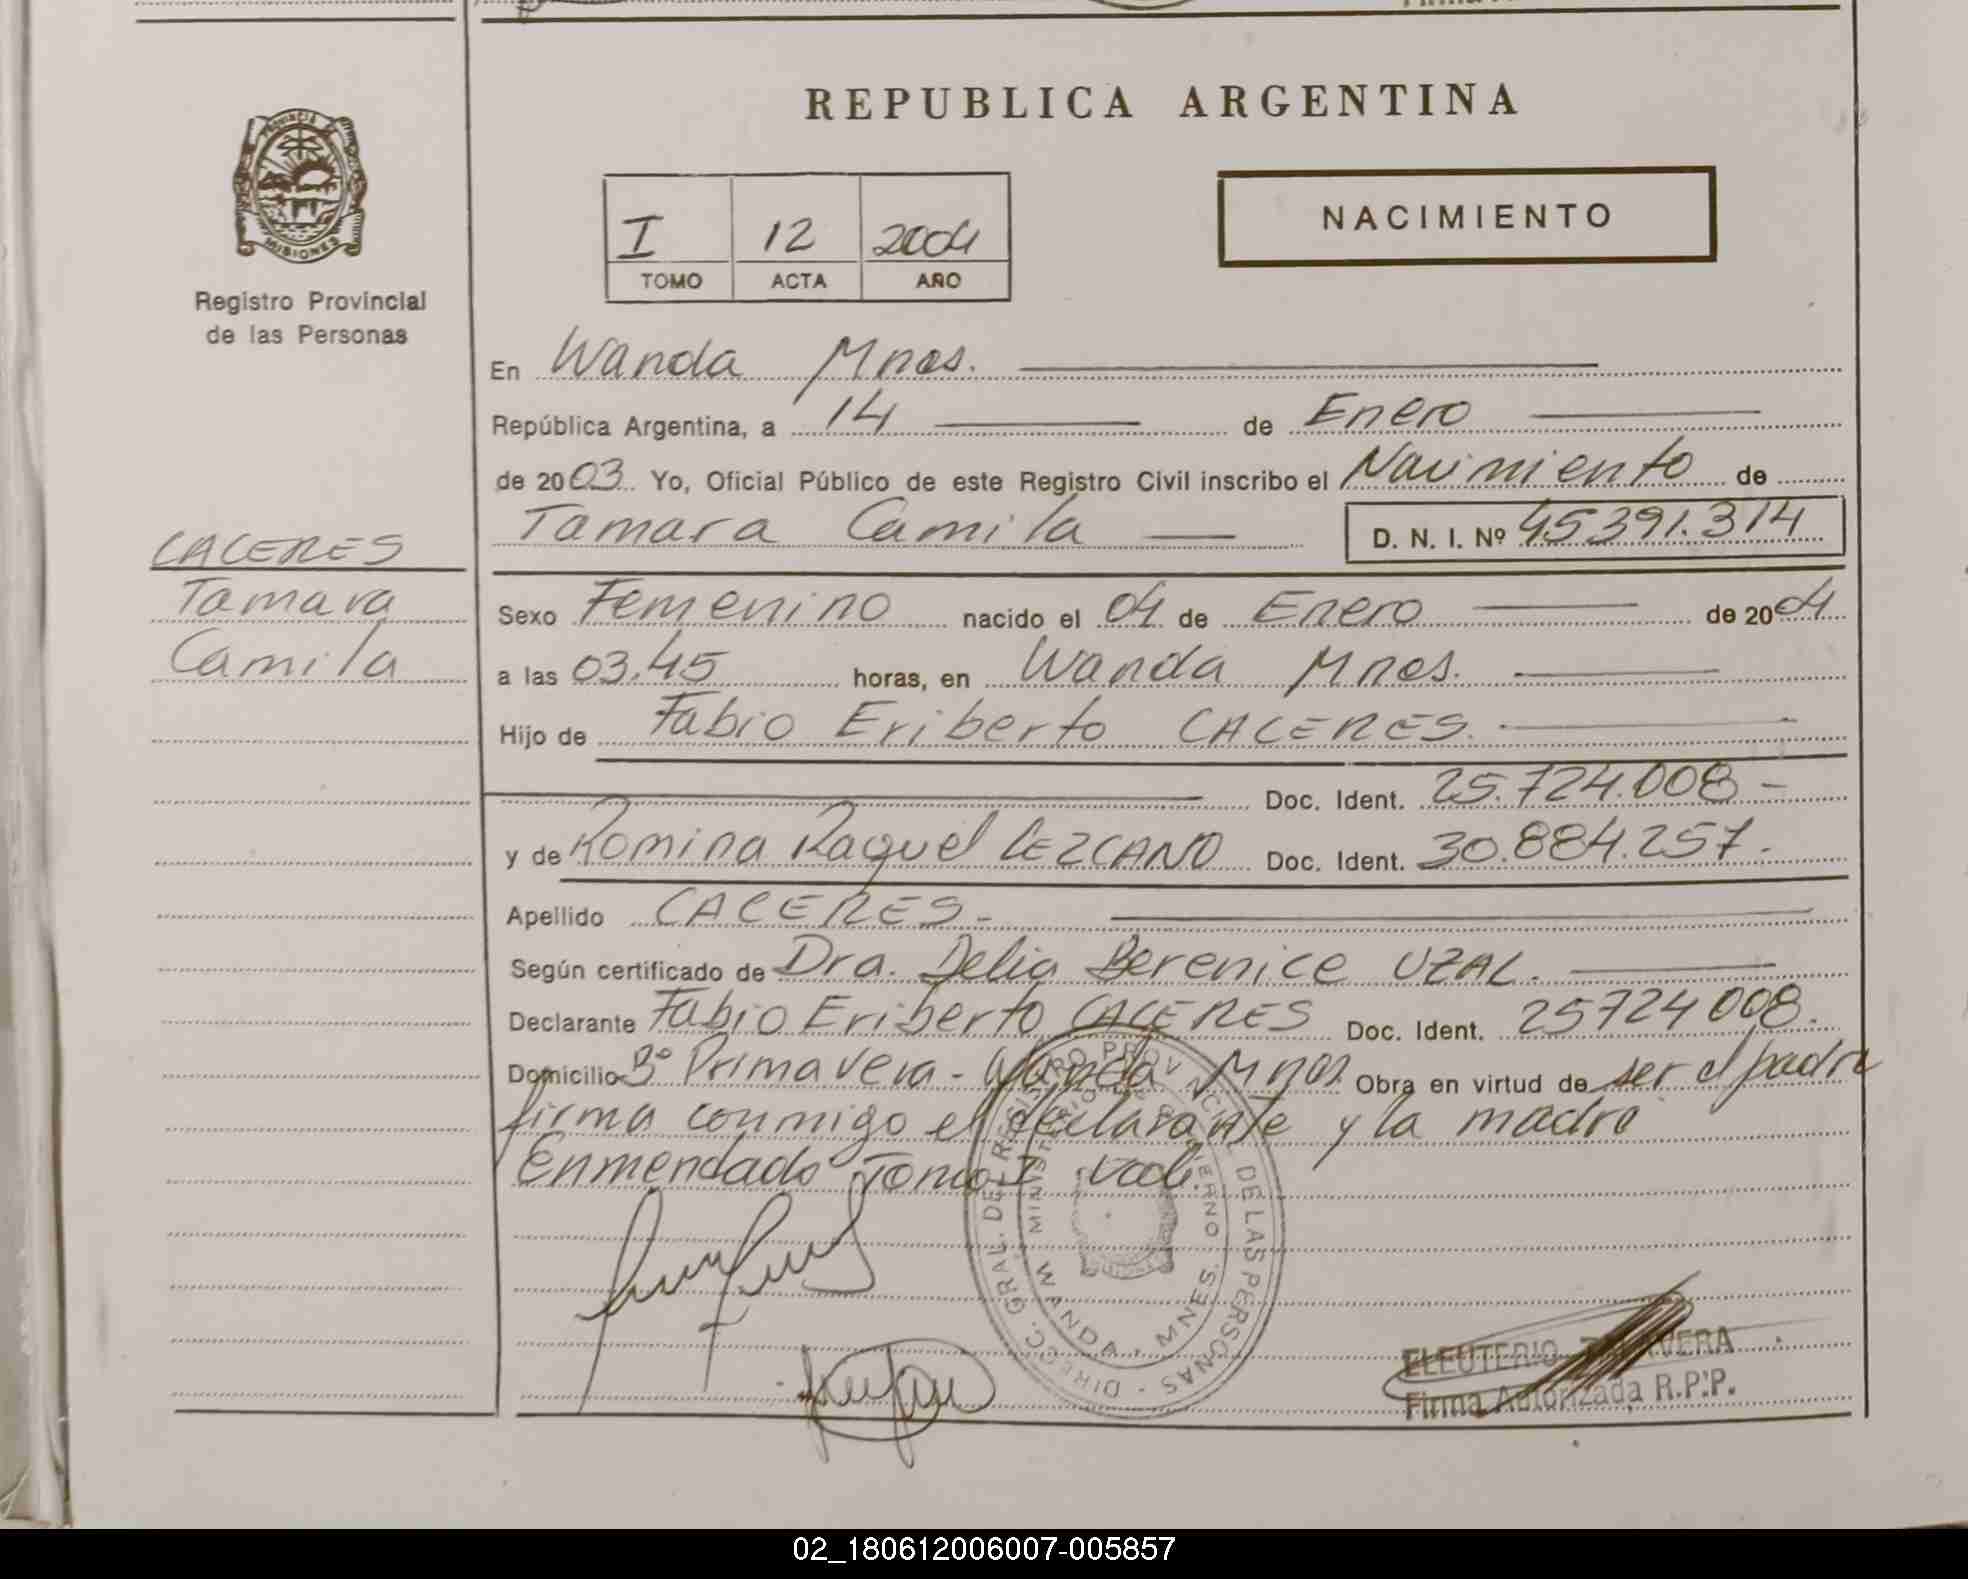 REPUBLICA ARGENTINA
PROVINCIA DE MISIONES
Registro Provincial
de las Personas
I 12 2004
TOMO ACTA AÑO
NACIMIENTO
En Wanda Mnes.
República Argentina, a 14 de Enero
de 2003 Yo, Oficial Público de este Registro Civil inscribo el Nacimiento de
Tamara Camila D. N. I. Nº 45391.314
CACERES
Tamara
Camila
Sexo Femenino nacido el 04 de Enero de 2004
a las 03.45 horas, en Wanda Mnes.
Hijo de Fabio Eriberto CACERES.
Doc. Ident. 25.724.008 -
y de Romina Raquel LEZCANO Doc. Ident. 30.884.257.
Apellido CACERES.-
Según certificado de Dra. Delia Berenice UZAL.
Declarante Fabio Eriberto CACERES Doc. Ident. 25724008.
Domicilio Bº Primavera - Wanda Mnes Obra en virtud de ser el padre
firma conmigo el declarante y la madre
Enmendado Tomo I vale.
DIRECC. GRAL. DEL REGISTRO PROVINCIAL DE LAS PERSONAS
MINISTERIO DE GOBIERNO
WANDA - MNES.
ELEUTERIO
Firma Autorizada R.P.P.
02_180612006007-005857